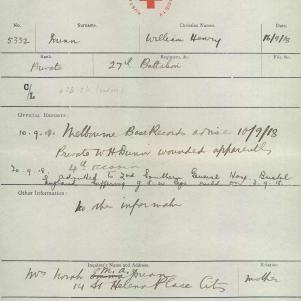 No.
Surname.
Christian Names.
Date.
5332
Dunn
William Henry
10/9/18
Rank
Regiment, &c.
File No.
Private
27th Battalion
OFFICIAL REPORTS:
10.9.18. Melbourne Base Records advise 10/9/18
Private W H Dunn wounded apparently
4th occasion
20.9.18. admitted to 2nd Southern General Hosp. Bristol
England suffering g.s.w. legs mild 9.18.
Other Information:
No other information
Inquirer's Name and Address.
Relation
Mrs Norah M. A. Dunn
14 St Helena Place City
mother